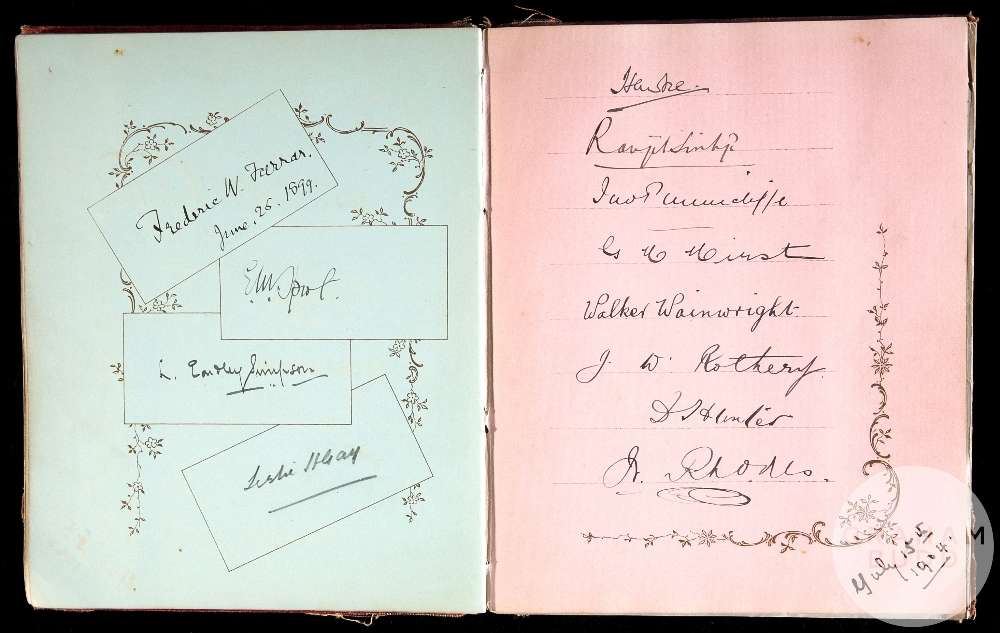 Frederic W. Farrar.
June. 25. 1899.
L. Simpson
Leslie H Gay
Hawke.
Ranjitsinhji
Jno Tunnicliffe
G H Hirst
Walker Wainwright
J. W. Rothery.
D S Hunter
W. Rhodes.
July 15th
1904.